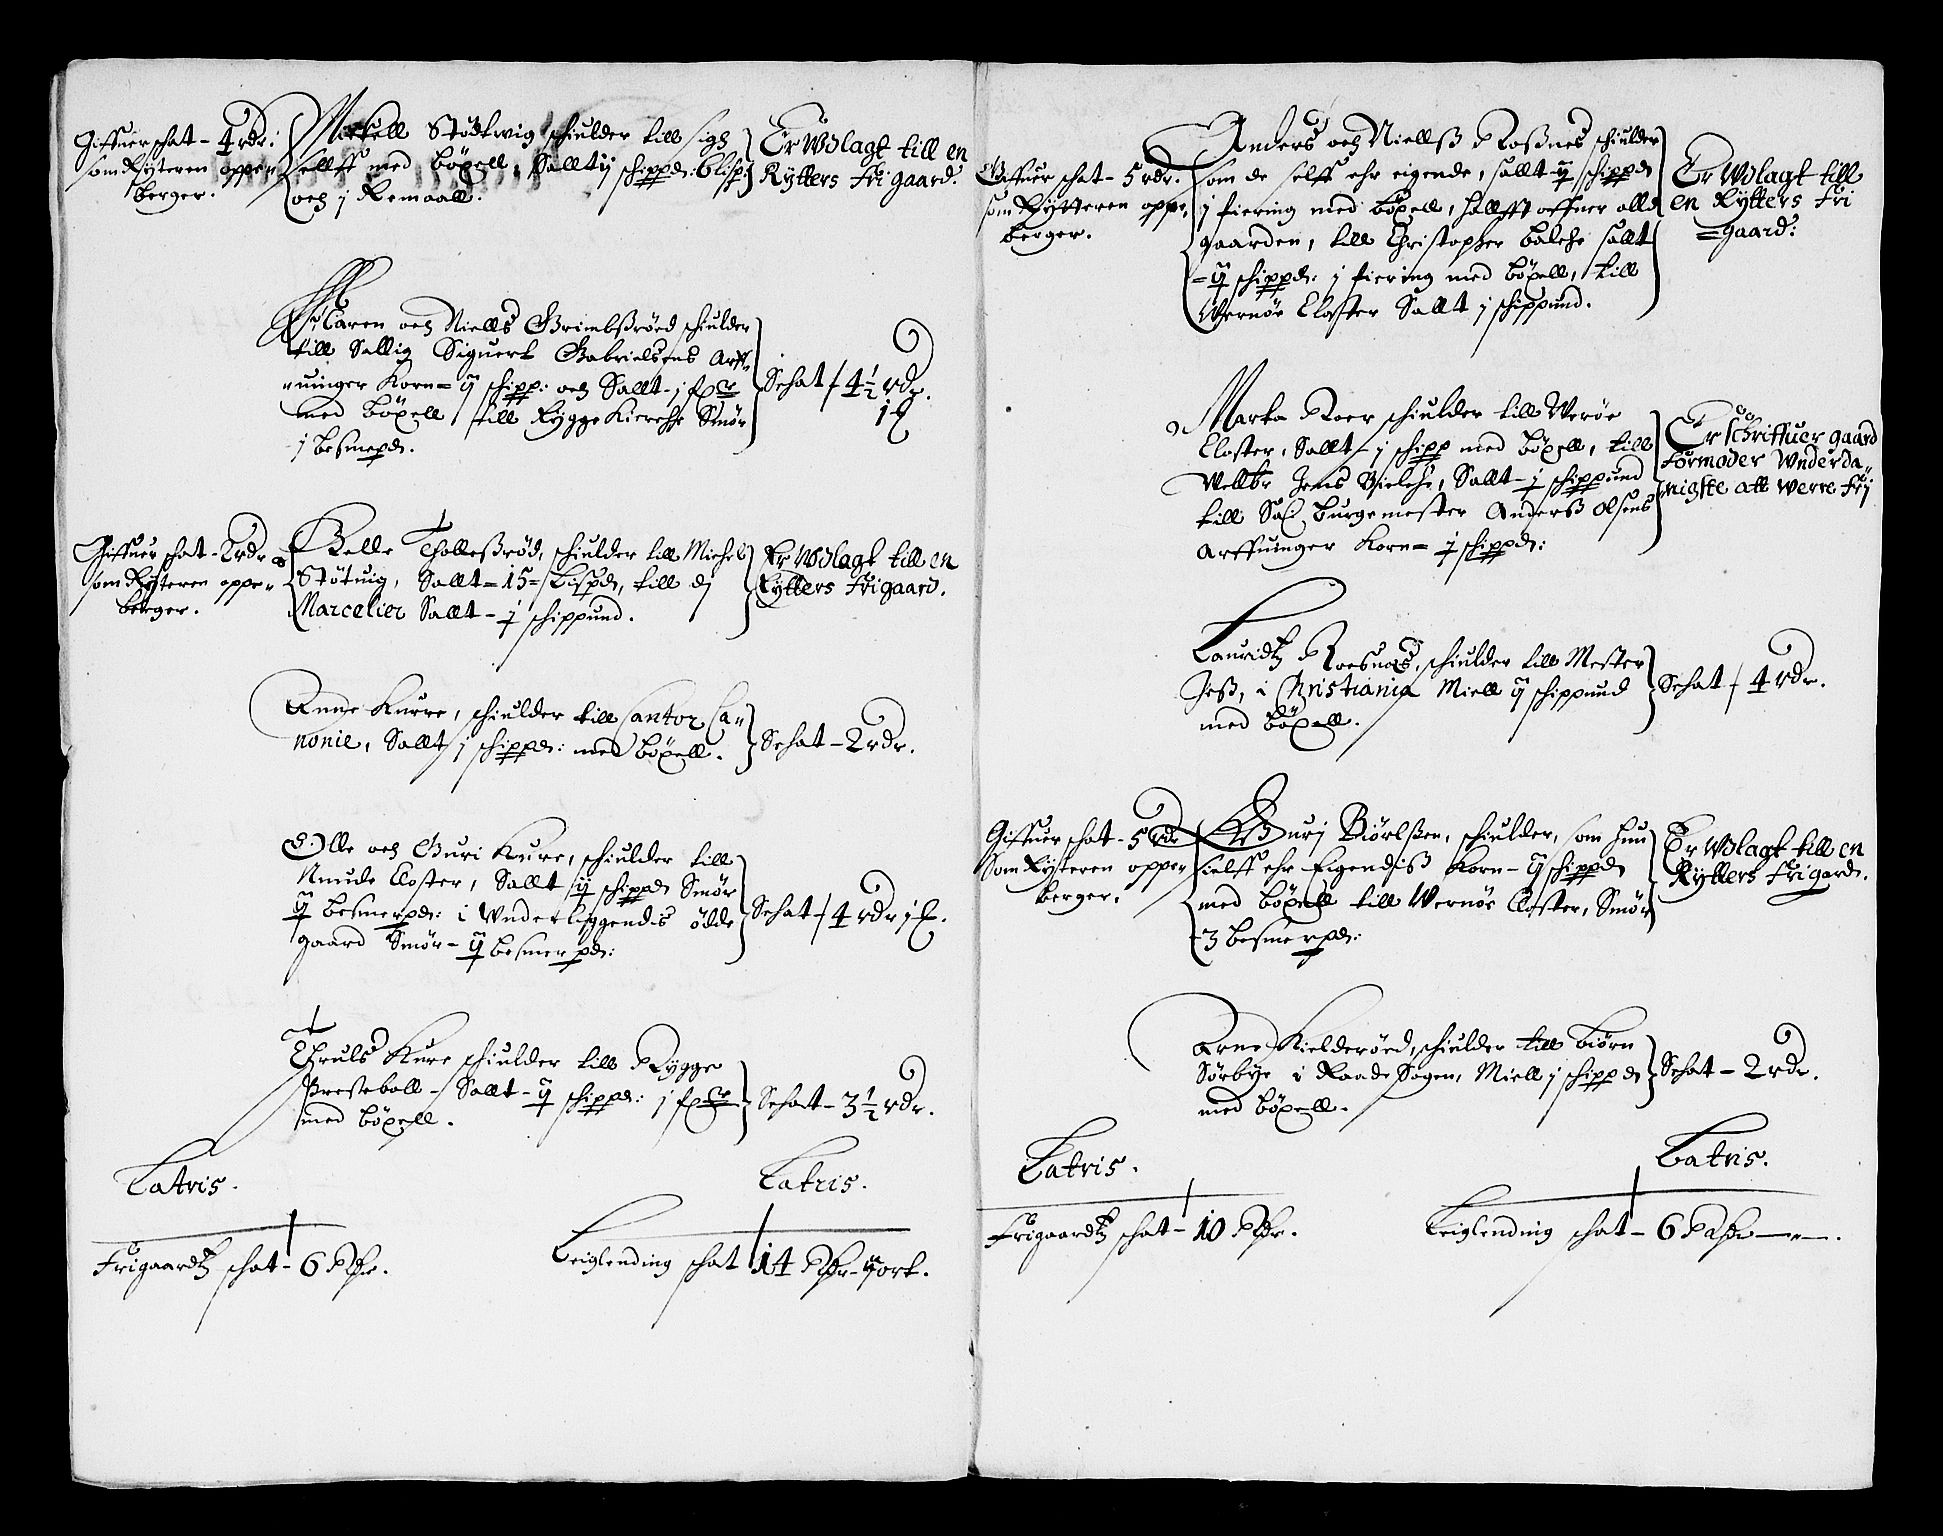 Giffuer schat - 4 rdr:
som Rytteren opper-
berger.
Mickell Stødtwig schiulder till sigh
sellff med böxell, Salltt ij schippd: 6 lisp:
och j Remaall.
Er Wdlagt till en
Rytters Frigaard.
Karen och Niells Grimbßröed schiulder
till Sallig Siguert Gabrielsens Arff-
uinger Korn = ij schipp: och Sallt - j fr
med böxell, till Rygge Kierche Smör
j besmepd.
Schat / 4½ rdr.
Giffuer schat - 2 rdr
som Rytteren opper-
berger.
Gelle Tholleßröd, schiulder till Michel
Støtuig, Sallt = 15 = Lispd, till dj
Marcelier Sallt - j schippund.
Er Wdlagt till en
Rytters Frigaard.
Anne Kurre, schiulder till Cantor Ca-
nonie, Sallt j schippd: med böxell.
Schat - 2 rdr.
Olle och Guri Kure, schiulder till
Nuude Closter, Sallt ij schippd Smör
ij besmerpd: i Wnderliggendis ödde
gaard Smör - ij besmerpd:
Schat / 4 rdr j
Thruls Kure schiulder till Rygge
Presteboll - Sallt - ij schippd: j fr
med böxell.
Schat - 3½ rdr.
Latris.
Latris.
Frigaardtz schat - 6 Rdr.
Leiglending schat 14 Rdr - ij ort.
Giffuer schat - 5 rdr.
som Rytteren opper-
berger.
Anders och Niellß Roßnes schiulder
som de selff ehr eigende, sallt ij schippd
j fiering med böxell, hallfft offuer alld
gaarden, till Christopher balche sallt
= ij schippd: j fiering med böxell, till
Wernöe Closter Sallt j schippund.
Er Wdlagt till
en Rytters Fri
= gaard:
Marta Roer schiulder till Weröe
Closter, Sallt - j schipp med böxell, till
Wellbr Jens Bielche, Sallt - j schippund
till Sal Burgemester Anderß Olsens
Arffuinger Korn = j schippd:
Er Schriffuer gaard
formoder Wnderda-
nigste att were frj
Lauridtz Roesnes, schiulder till Mester
Jeß, i Christiania Miell ij schippund
med böxell.
Schat / 4 rdr.
Giffuer schat - 5 rdr
Som Rytteren opper
berger.
Gurj Biörlßen, schiulder, som hun
sielff ehr Eigendiß Korn - ij schippd
med böxell till Wernöe Closter, Smör
- 3 besmerpd:
Er Wdlagt till en
Rytters Frigard.
Arne Kielderöed, schiulder till biörn
Sörbye i Raade Sogen, Miell j schippd
med böxell.
Schat - 2 rdr.
Latris.
Latris.
Frigaardtz schat - 10 Rdr.
Leiglending schat - 6 Rdr